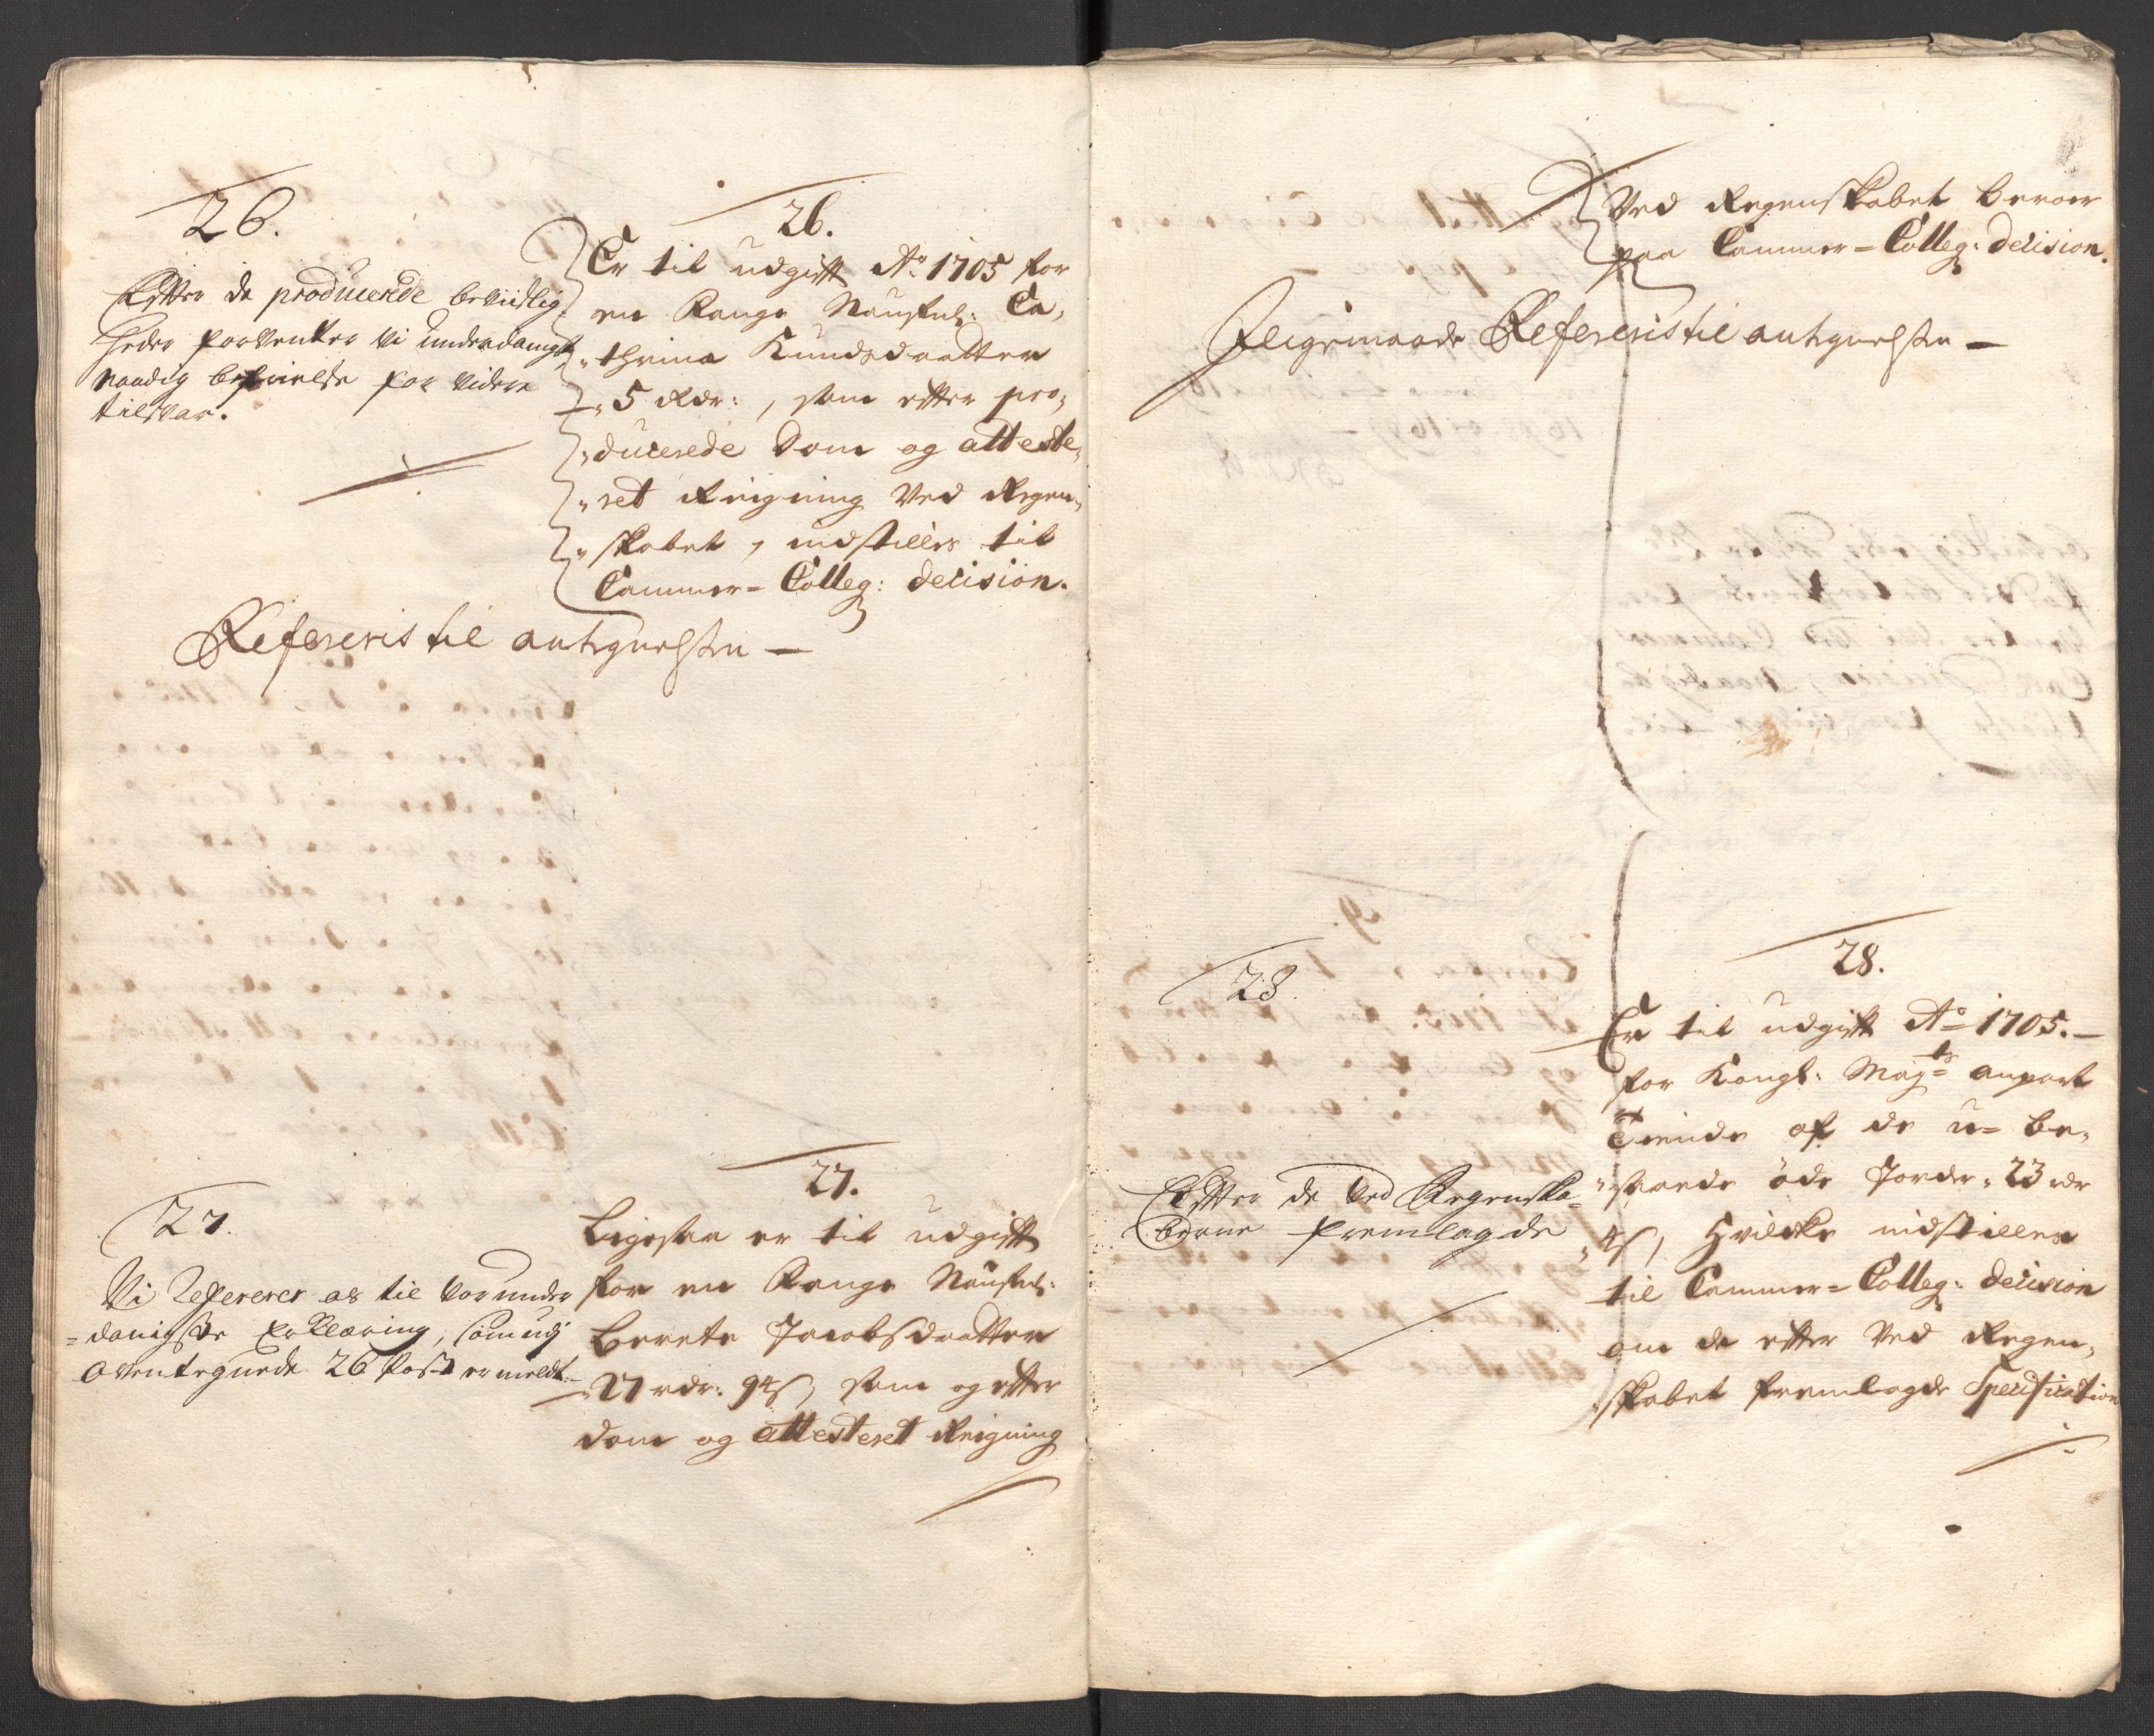 26.
Efter de producerede beviislig-
heder forventer vi underdanigst
naadig befrielse for videre
tilsvar.
26.
Er til udgift Ao 1705 for
en Fange Naufnl: Ca,
thrina Knudsdaatter
5 Rdr:, som efter pro,
ducerede Dom og atteste,
ret Reigning Ved Regen,
skabet, indstilles til
Cammer=Colleg: decision.
Refereris til antegnelsen —
27.
Vi Refererer os til vor under
=danigste Erklæring, som udj
oventeg̅nede 26 Post er meldt.
27.
Ligesaa er til udgift
for en Fange Naufnl:
Berete Jacobsdaatter
27 rdr: 94 ß, som og efter
dom og attesteret Reigning
Ved Regenskabet beroer
paa Cammer=Colleg: decision.
J ligemaade Refereris til antegnelsen —
28.
Efter de ved Regenska=
berne fremlagde
28.
Er til udgift Ao 1705. —
for Kongl: Mayts anpart
Tiende af de u= be,
saaede öde Jorder, 23 rdr
4 ß, Hvilke indstilles
til Cammer=Colleg: decision
om de efter Ved Regen,
skabet fremlagde Specification